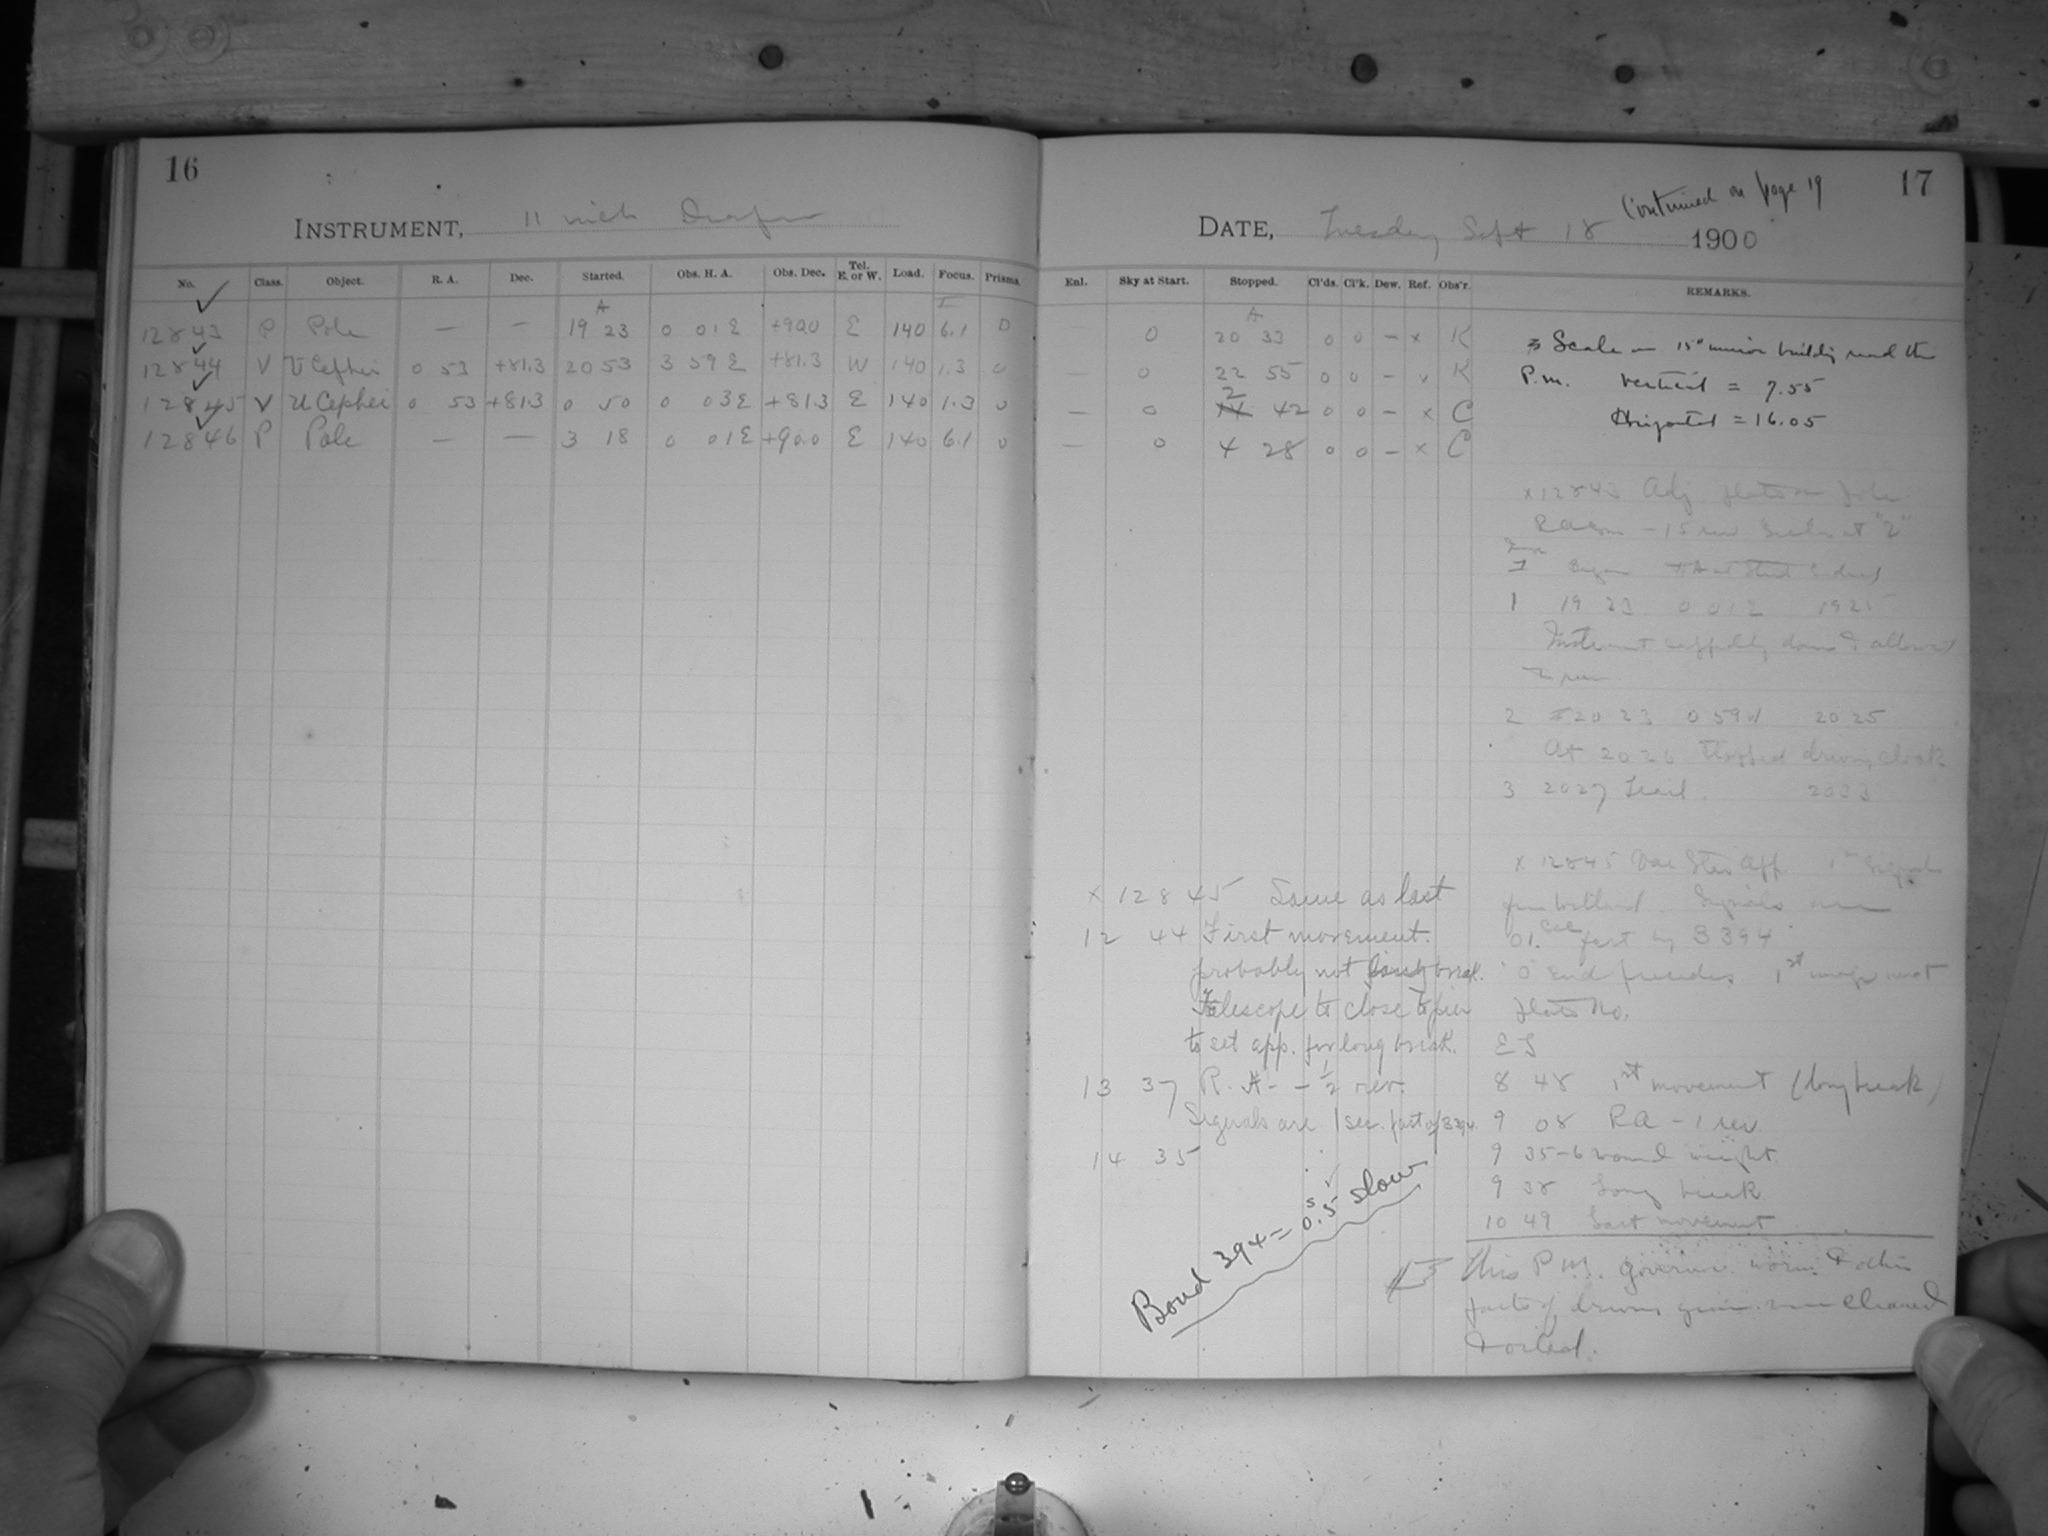 16
INSTRUMENT, 11 inch Draper
No. Class. Object. R. A. Dec. Started. Obs. H. A. Obs. Dec. Tel. E. or W. Load. Focus. Prisms.
12843 P Pole — — 19 23 0 01E +90.0 E 140 6.1 0
12844 V U Cephei 0 53 +81.3 20 53 3 59 E +81.3 W 140 1.3 0
12845 V U Cephei 0 53 +81.3 0 50 0 03E +81.3 E 140 1.3 0
12846 P Pole — — 3 18 0 01E +90.0 E 140 6.1 0
17
Continued on page 19
DATE, Tuesday Sept 18 1900
Enl. Sky at Start. Stopped. Cl'ds. Cl'k. Dew. Ref. Obs'r. REMARKS.
— 0 20 33 0 0 — x K
— 0 22 55 0 0 — x K
— 0 2 42 0 0 — x C
— 0 4 28 0 0 — x C
Scale on 15" mirror building read this
P.m. Vertical = 7.55
Horizontal = 16.05
x 12843 Adj. plate on Pole
1 19 23 0 01E 19 25
2 20 23 0 59W 20 25
At 20 26 Stopped driving clock
3 20 27 Trail 20 33
x 12845 Var Star App. 1st Signals
fast by B 394
0 end precedes. 1st image next
plate No.
E S
8 48 1st movement (long break)
9 08 RA - 1 rev.
9 35-6 wound weight.
9 38 Long break
10 49 Last movement
x 12845 Same as last
12 44 First movement.
probably not long break.
Telescope to close to pier
to set app. for long break.
13 37 R. A - - 1/2 rev.
Signals are 1 sec. fast of B 394.
14 35
Bond 394 = 0.5s slow
This P.M. governor worm & other
parts of driving gear were cleaned
& oiled.